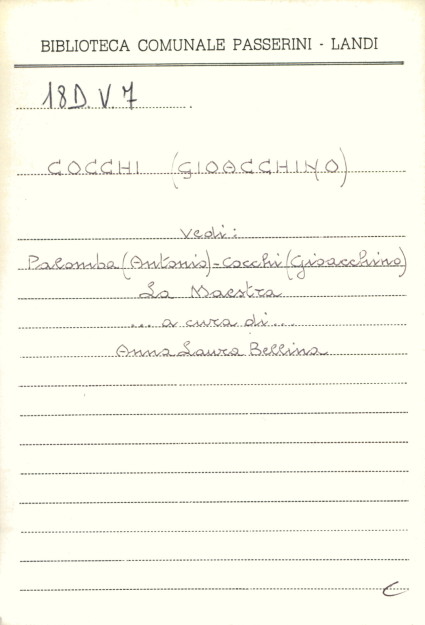 BIBLIOTECA COMUNALE PASSERINI - LANDI
18D.V.7
COCCHI (GIOACCHINO)
Vedi:
Palomba (Antonio) - Cocchi (Gioacchino)
La Maestra
... a cura di ...
Anna Laura Bellina
C